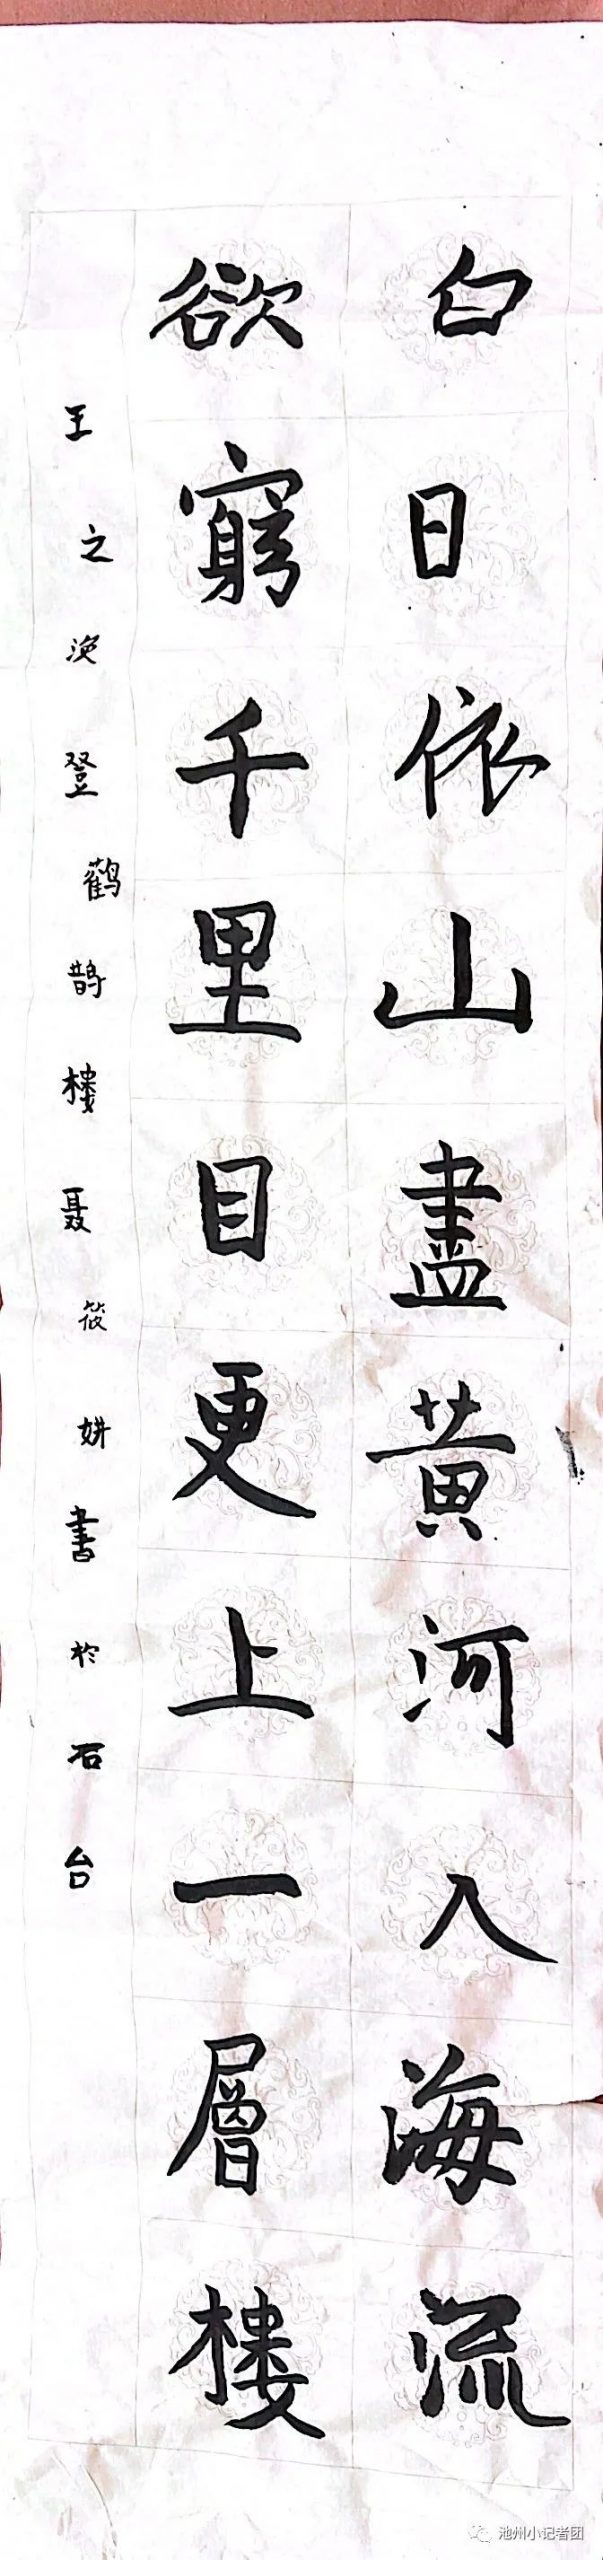 白日依山盡黄河入海流
欲窮千里目更上一層樓
王之涣登鹳鹊樓聂筱妍書於石台
池州小记者团